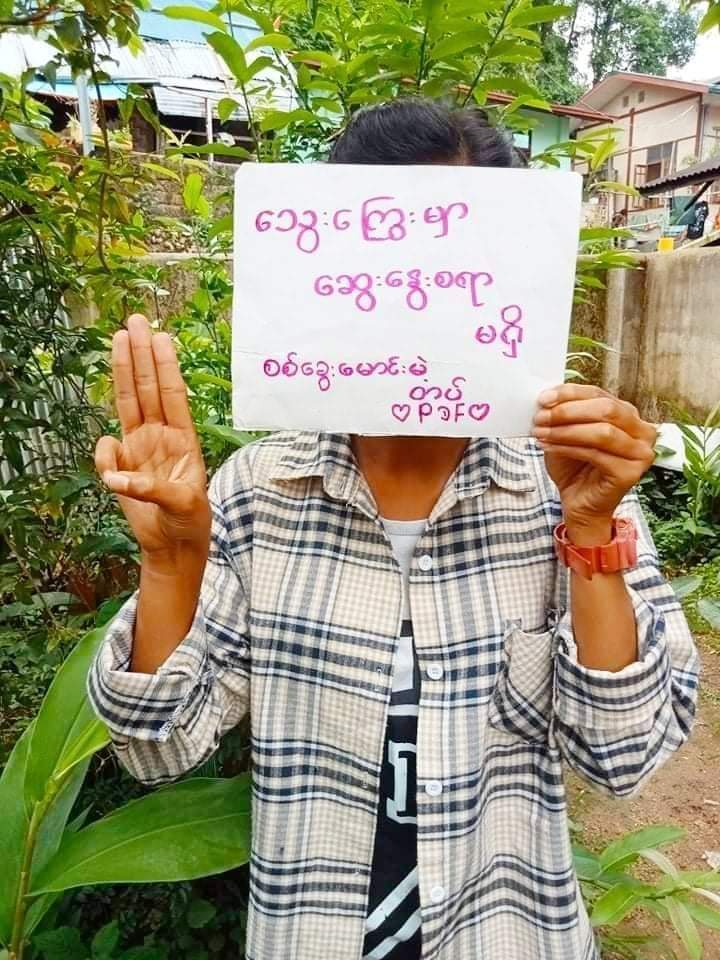 သွေးကြွေးမှာ
ဆွေးနွေးစရာ
မရှိ
စစ်ခွေးမောင်းမဲ့
တပ်
♡PDF♡